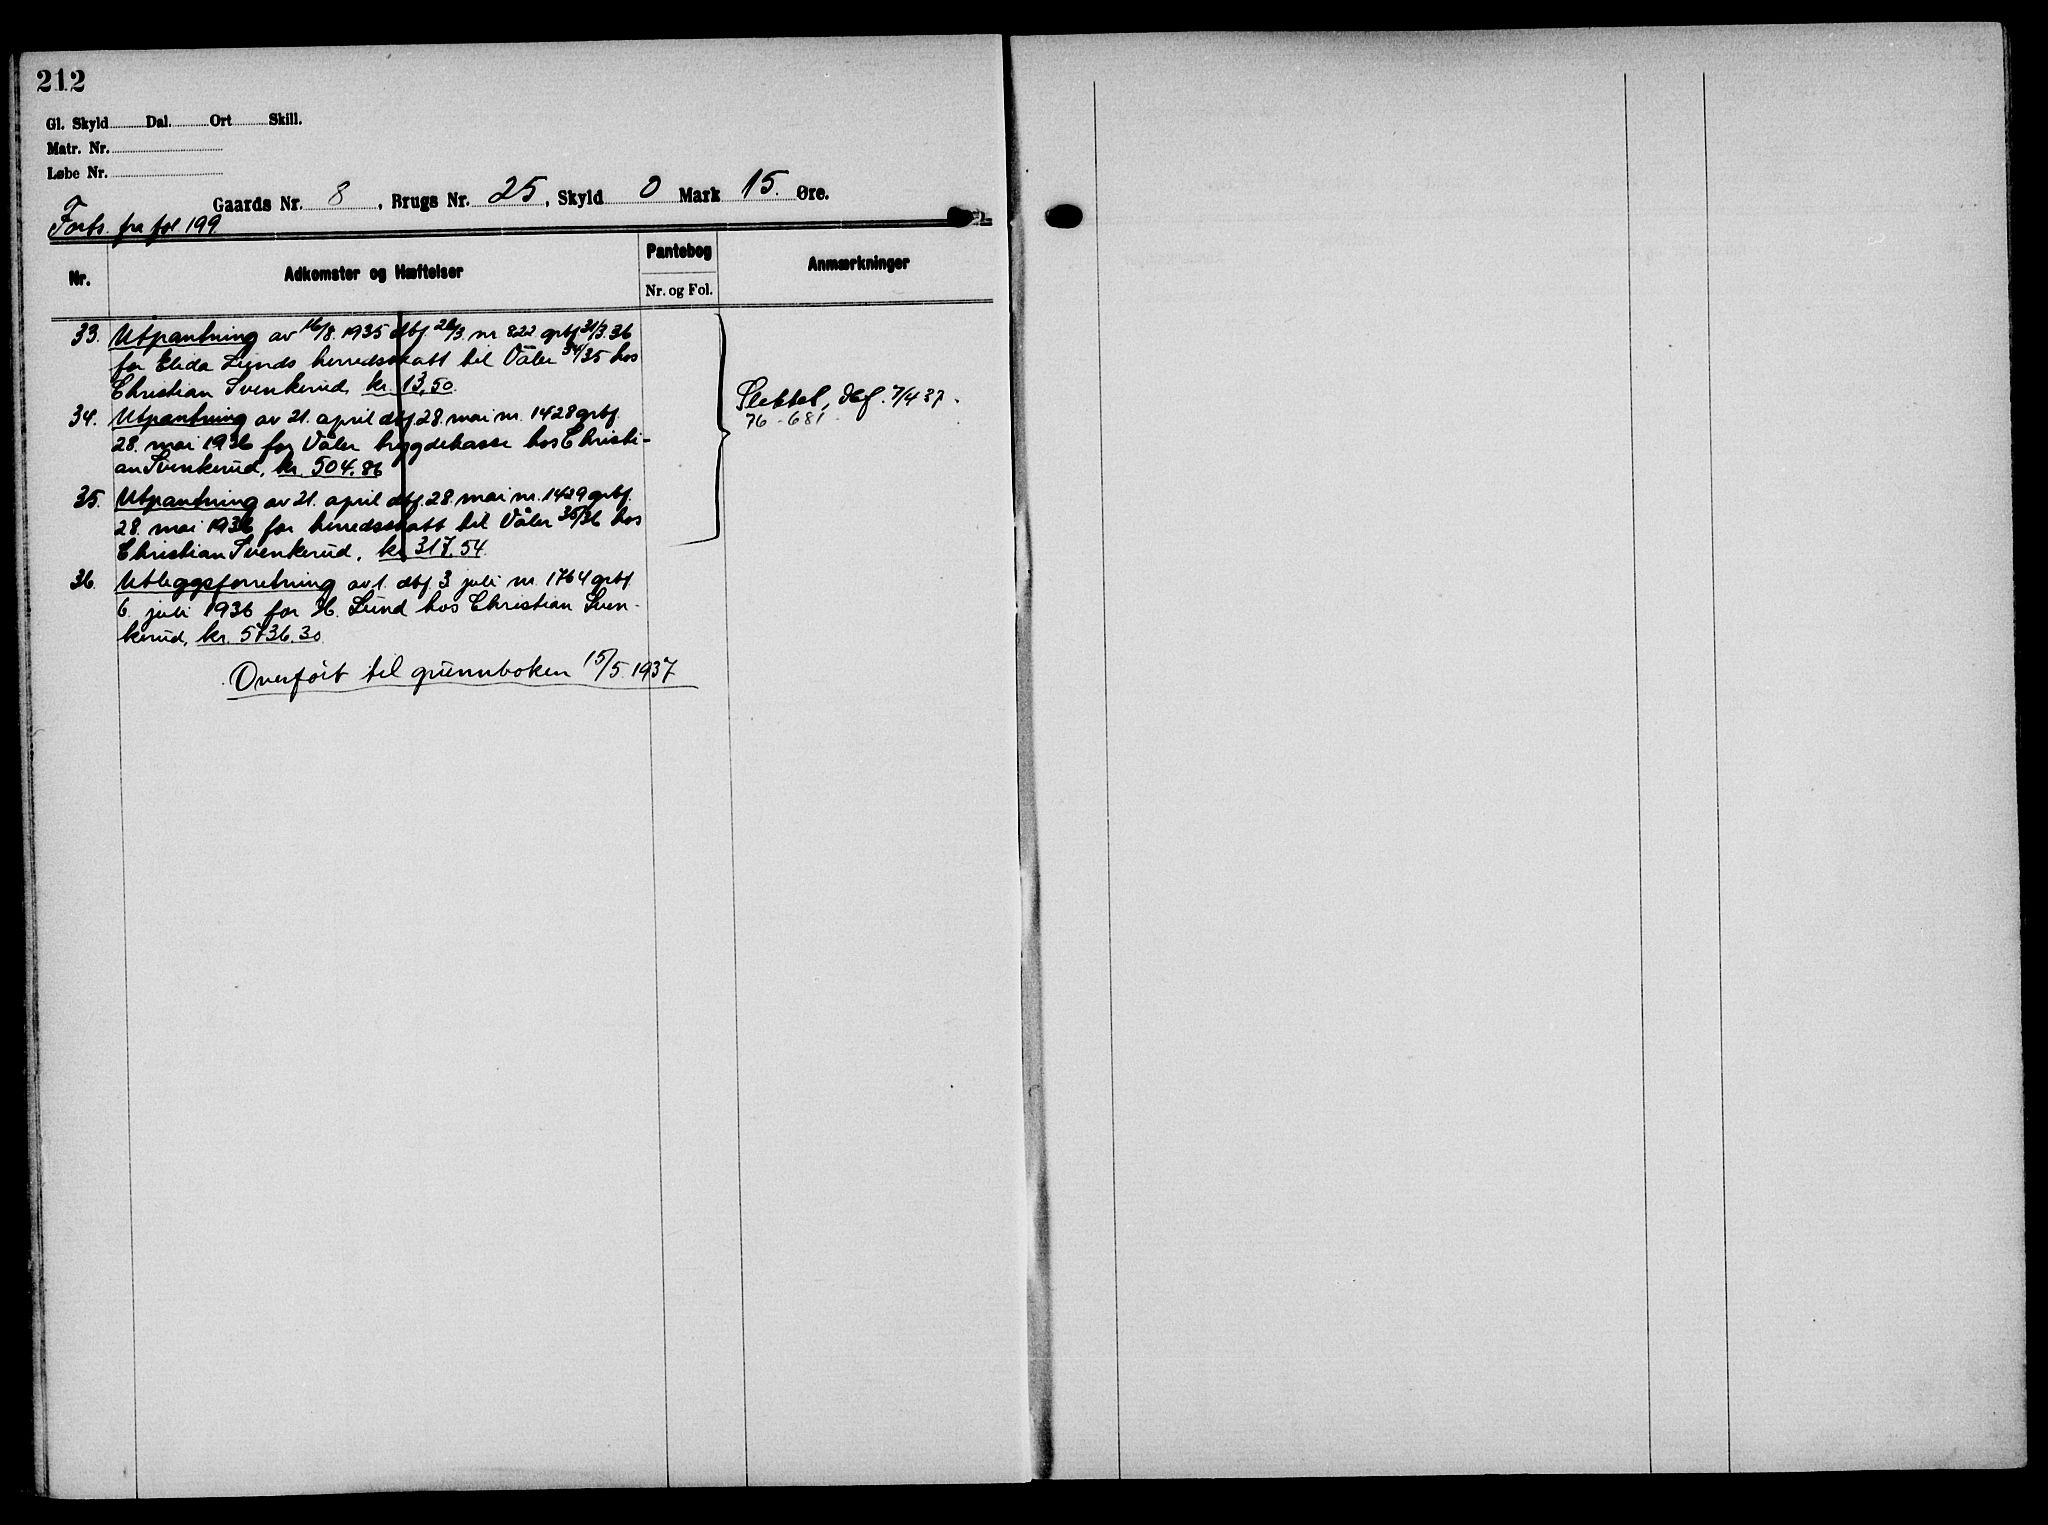 212
Gl. Skyld Dal. Ort Skill.
Matr. Nr.
Løbe Nr.
Gaards Nr. 8, Brugs Nr. 25, Skyld 0 Mark 15. Øre.
Forts. fra fol 199
Nr.
Adkomster og Hæftelser
Pantebog
Nr. og Fol.
Anmærkninger
33. Utpantning av 16/8. 1935 dbf. 26/3. nr 822 grbf 31/3.36
for Elida Lunds herredsskatt til Våler 34/35 hos
Christian Svenkerud, kr. 13,50.
34. Utpantning av 21. april dbf. 28. mai nr. 1428 grbf.
28. mai 1936 for Våler bygdekasse hos Christi-
an Svenkerud, kr. 504.86
35. Utpantning av 21. april dbf. 28. mai nr. 1429 grbf.
28. mai 1936 for herredsskatt til Våler 35/36 hos
Christian Svenkerud, kr. 317.54.
Slettet, dbf. 7/4 37.
76 - 681
36. Utleggsforretning av 1. dbf. 3 juli nr. 1764 grbf.
6. juli 1936 for H. Lund hos Christian Sven-
kerud, kr. 5736.30.
Overført til grunnboken 15/5. 1937